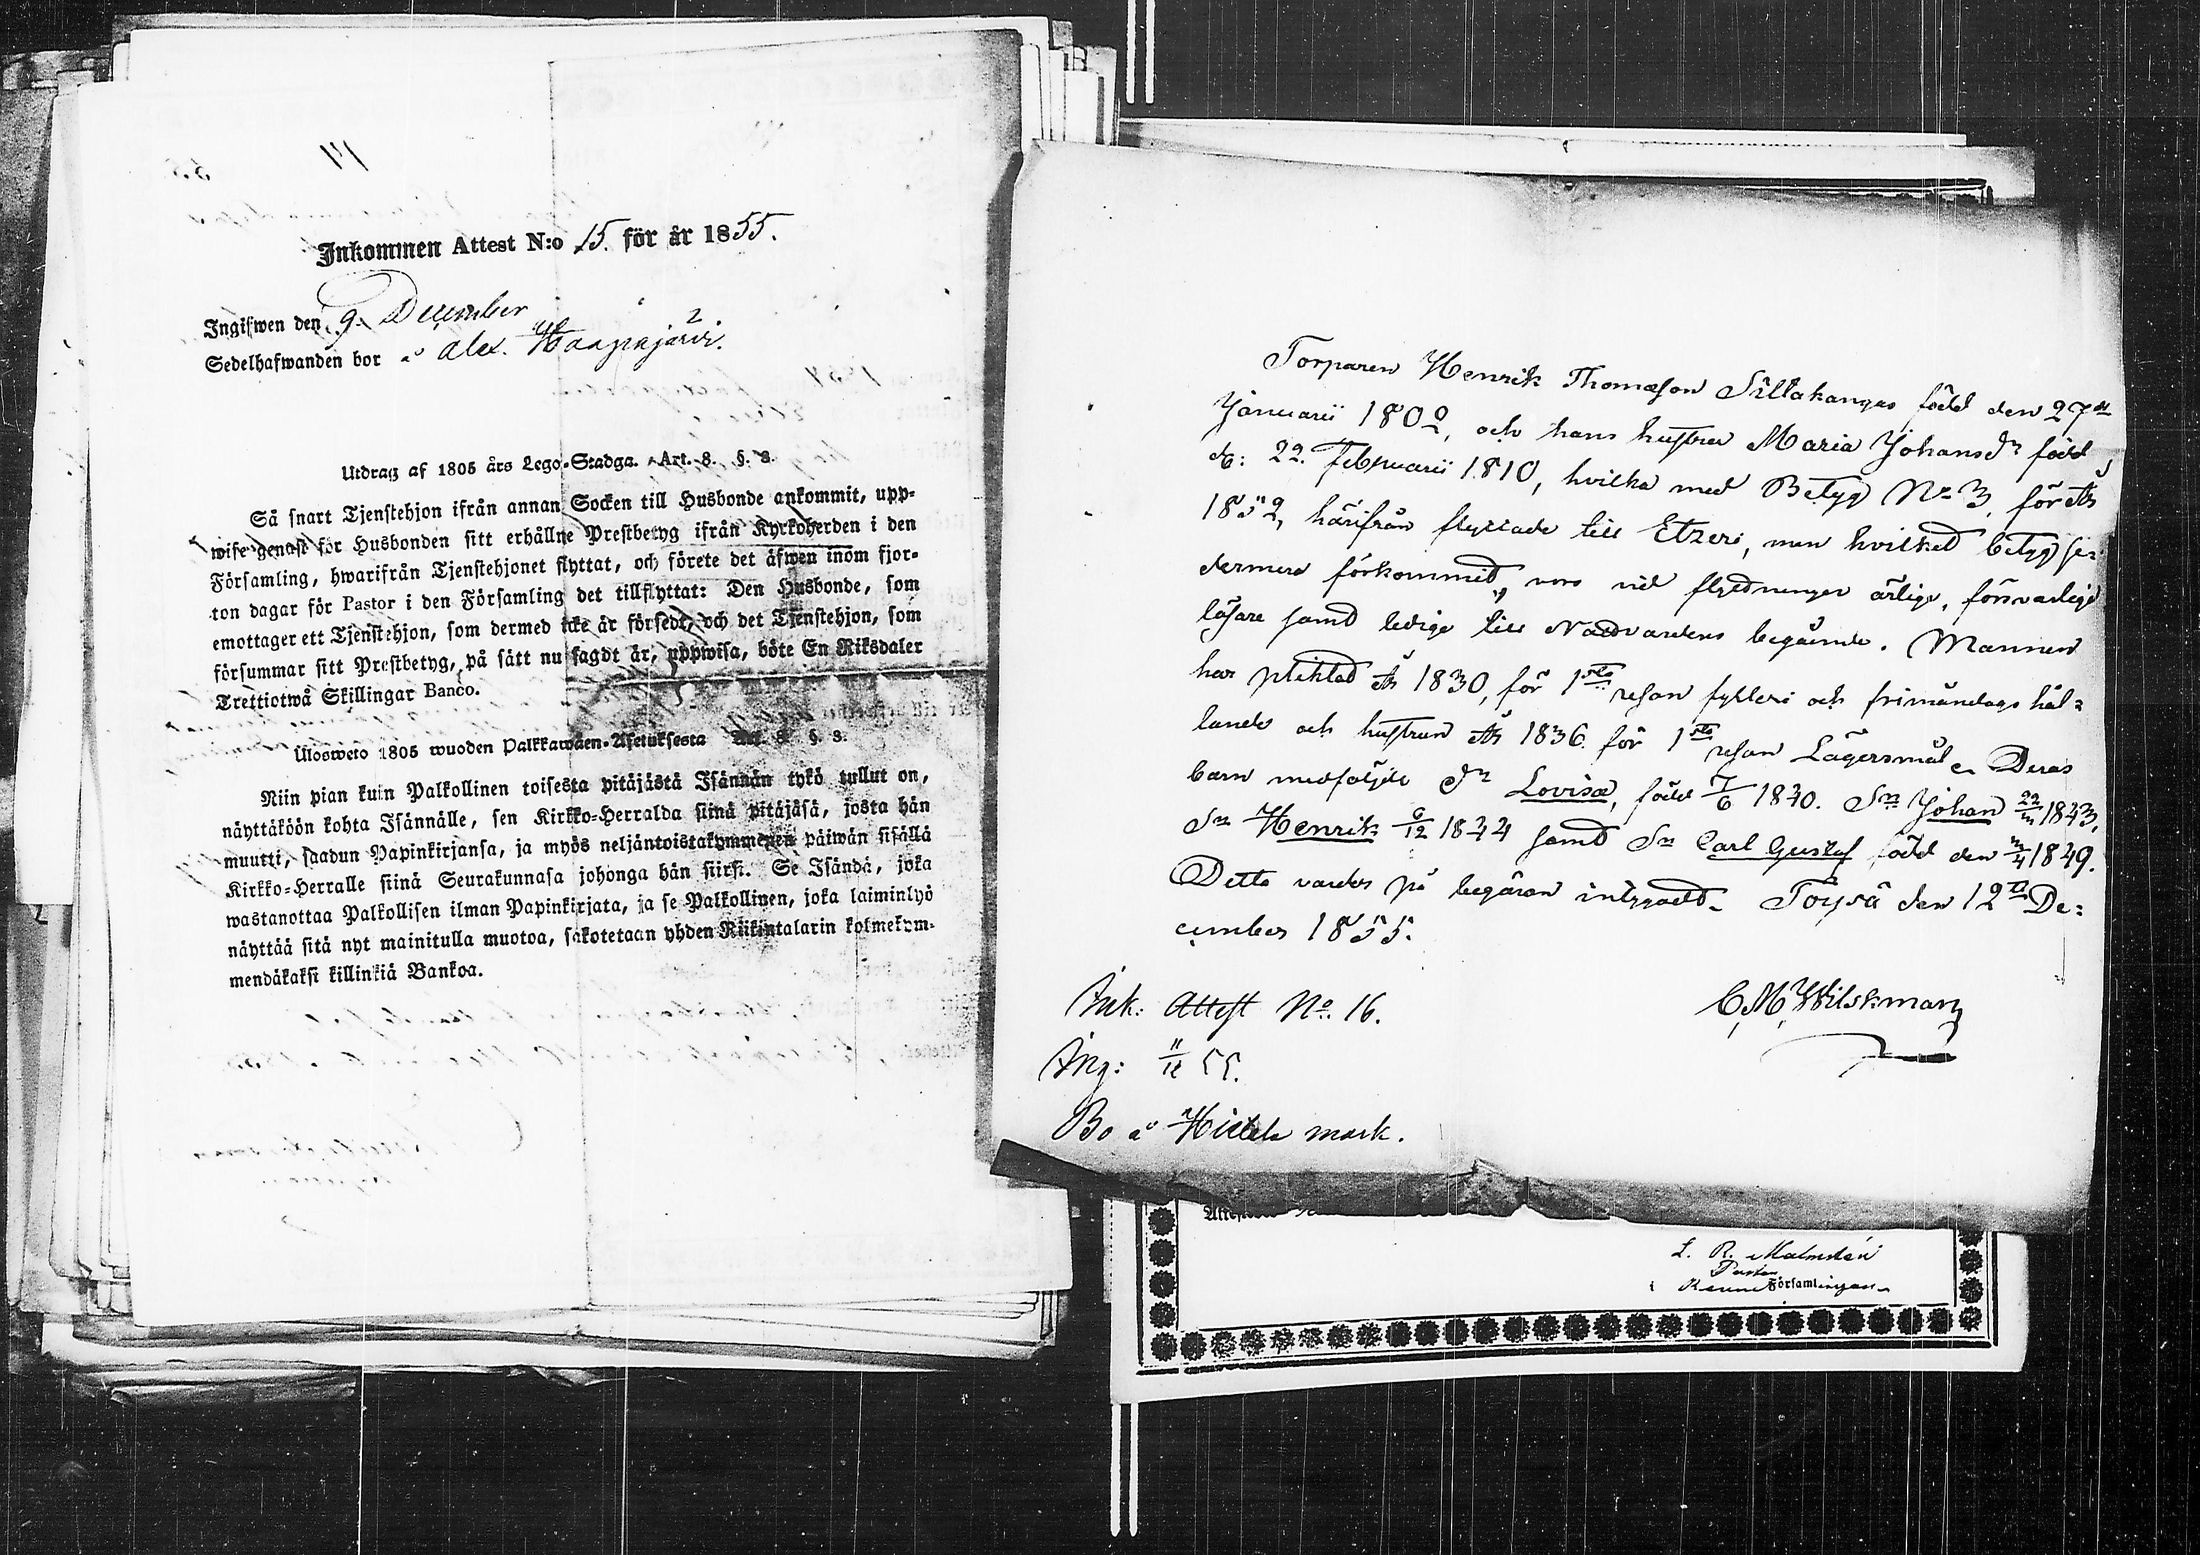 Inkommen Attest N:o 15. för år 1855.
Ingifwen den 9. December
Sedelhafwanden bor å Alex. Haapajärvi. 2
Utdrag af 1805 års Lego-Stadga. Art. 8. §. 3.
Så snart Tjenstehjon ifrån annan Socken till Husbonde ankommit, upp-
wise genast för Husbonden sitt erhållne Prestbetyg ifrån Kyrkoherden i den
Församling, hwarifrån Tjenstehjonet flyttat, och förete det äfwen inom fjor-
ton dagar för Pastor i den Församling det tillflyttat: Den Husbonde, som
emottager ett Tjenstehjon, som dermed icke är försedt, och det Tjenstehjon, som
försummar sitt Prestbetyg, på sätt nu sagdt är, uppwisa, böte En Riksdaler
Trettiotwå Skillingar Banco.
Ulosweto 1805 wuoden Palkkawäen-Asetuksesta Art. 8 §. 3.
Niin pian kuin Palkollinen toisesta pitäjästä Isännän tykö tullut on,
näyttäköön kohta Isännälle, sen Kirkko-Herralda siinä pitäjäsä, josta hän
muutti, saadun Papinkirjansa, ja myös neljäntoistakymmenen päiwän sisällä
Kirkko-Herralle siinä Seurakunnasa johonga hän siirsi. Se Isändä, joka
wastanottaa Palkollisen ilman Papinkirjata, ja se Palkollinen, joka laiminlyö
näyttää sitä nyt mainitulla muotoa, sakotetaan yhden Riikintalarin kolmekym-
mendäkaksi killinkiä Bankoa.
Torparen Henrik Thomasson Sillakangas född den 27de
Januarii 1802, och hans hustru Maria Johansdr född
d: 22 Februarii 1810, hvilka med Betyg No 3. för År
1852, härifrån flyttade till Etzeri, men hvilket betyg se-
dermera förkommit, voro vid flyttningen ärlige, försvarlige
läsare samt ledige till Nattvardens begående. Mannen
har pliktad År 1830, för 1sta resan fylleri och frimåndags hål-
lande och hustrun År 1836. för 1sta resan Lägersmål. Deras
barn medföljde Dr Lovisa, född 7/6 1840. Sn Johan 22/ 1843,
Sn Henrik 6/12 1844 samt Sn Carl Gustaf född den /4 1849.
Detta varder på begäran intygadt. Töysä den 12te De-
cember 1855.
C. M. Wilskman
Ink: Attest No. 16.
Ing: 55.
Bo å mark.
L. R. Malmstén
Pastor
Församlingen